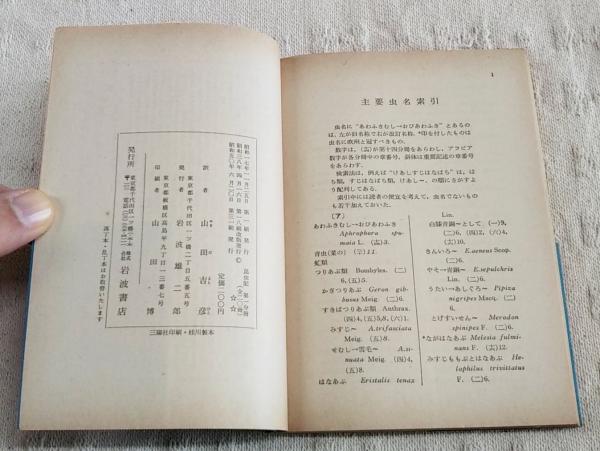 昭和一七年一一月二五日 第一刷発行
昭和三八年四月一六日 第一八刷改版発行©
昭和五〇年六月二〇日 第三一刷発行
昆虫記 第一分冊
(全二〇冊) ☆☆
定価二〇〇円
訳者 山田吉彦
東京都千代田区一ツ橋二丁目五番五号
発行者 岩波雄二郎
東京都板橋区高島平九丁目一三番七号
印刷者 山田博
東京都千代田区一ツ橋
発行所 株式会社 岩波書店
落丁本・乱丁本はお取替いたします
三陽社印刷・桂川製本
1
主要虫名索引
虫名に“あわふきむし→おびあわふき”とあるのは,左が旧名称で右が改訂名称.*印を付したものは虫名に欧洲と冠すべきもの.
数字は,(吉)が第十四分冊をあらわし,アラビア数字が各分冊中の章番号,斜体は重要記述の章番号をあらわす.
検索法は,例えば“けあしすじはなばち”は,はち類,すじはなばち類,けあし〜,の順にさがすよう配列してある.
索引中には読者の便宜を考えて,虫名でないものも若干加えておいた.
〔ア〕
あわふきむし→おびあわふき
Aphrophora spumaria L. (吉)3.
青虫(菜の)
虻類
つりあぶ類 Bombyles. (二)6, (五)5.
かぎつりあぶ Geron gibbosus Meig. (二)6.
すきばつりあぶ類 Anthrax. (四)4, (五)5,8, (六)1.
みすじ〜 A.trifasciata Meig. (五)8.
せむし→雲毛〜 A.sinuata Meig. (四)4, (五)8.
はなあぶ Eristalis tenax
Lin.
白膝青鋼〜として (一)9, (二)6, (四)2, (六)4, (七)3.
きんいろ〜 E.aeneus Scop. (二)6.
やモ→青鋼〜 E.sepulcris Lin. (二)6.
うたい→あしぐろ〜 Pipiza nigripes Macq. (二)6.
とげすいせん〜 Merodon spinipes F. (二)6.
*ながはなあぶ Melesia fulminans F. (六)12.
みすじももぶとはなあぶ Helophilus trivittatus F. (二)6.